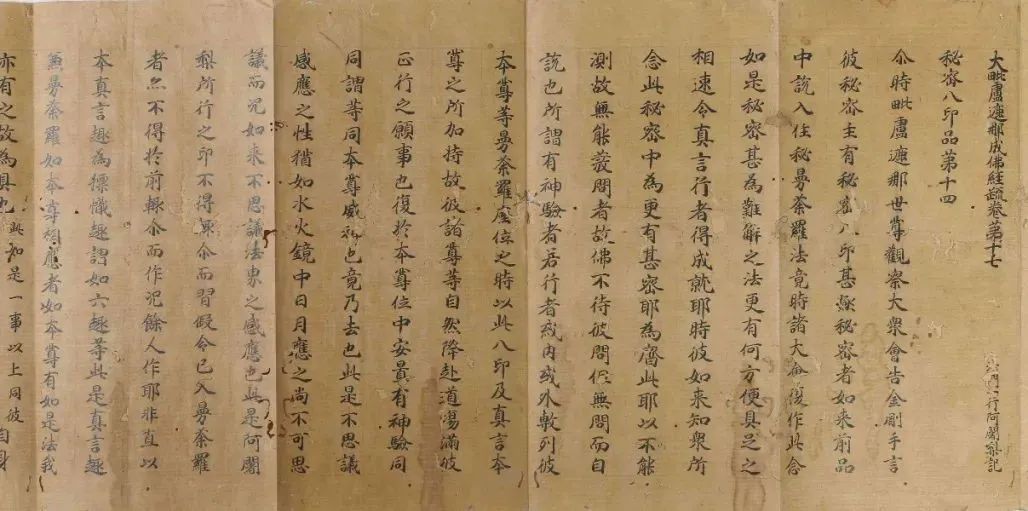 大毗盧遮那成佛經疏卷第十七 沙門一行阿闍梨記
秘密八印品第十四
尒時毗盧遮那世尊觀察大衆會告金剛手言
彼秘密主有秘密八印甚深秘密者如來前品
中說入住秘曼荼羅法竟時諸大會復作此念
如是秘密甚為難解之法更有何方便具足之
相速令真言行者得成就耶時彼如来知衆所
念此秘密中為更有甚密耶為齊此耶以不能
測故無能發問者故佛不待彼問從無問而自
說也所謂有神驗者若行者或內或外敷列彼
本尊等曼荼羅座位之時以此八印及真言本
尊之所加持故彼諸尊等自然降赴道場滿彼
正行之願事也復於本尊位中安置有神驗同
同謂等同本尊威神也竟乃去也此是不思議
感應之性猶如水火鏡中日月應之尚不可思
議而況如来不思議法界之感應也此是阿闍
梨所行之印不得輙尒而習假令已入曼荼羅
者亦不得於前輙尒而作況餘人作耶非直以
本真言趣為摽幟趣謂如六趣等此是真言趣
無曼荼羅如本尊相應者如本尊有如是法我
亦有之故為具也此如是一事以上同彼自身